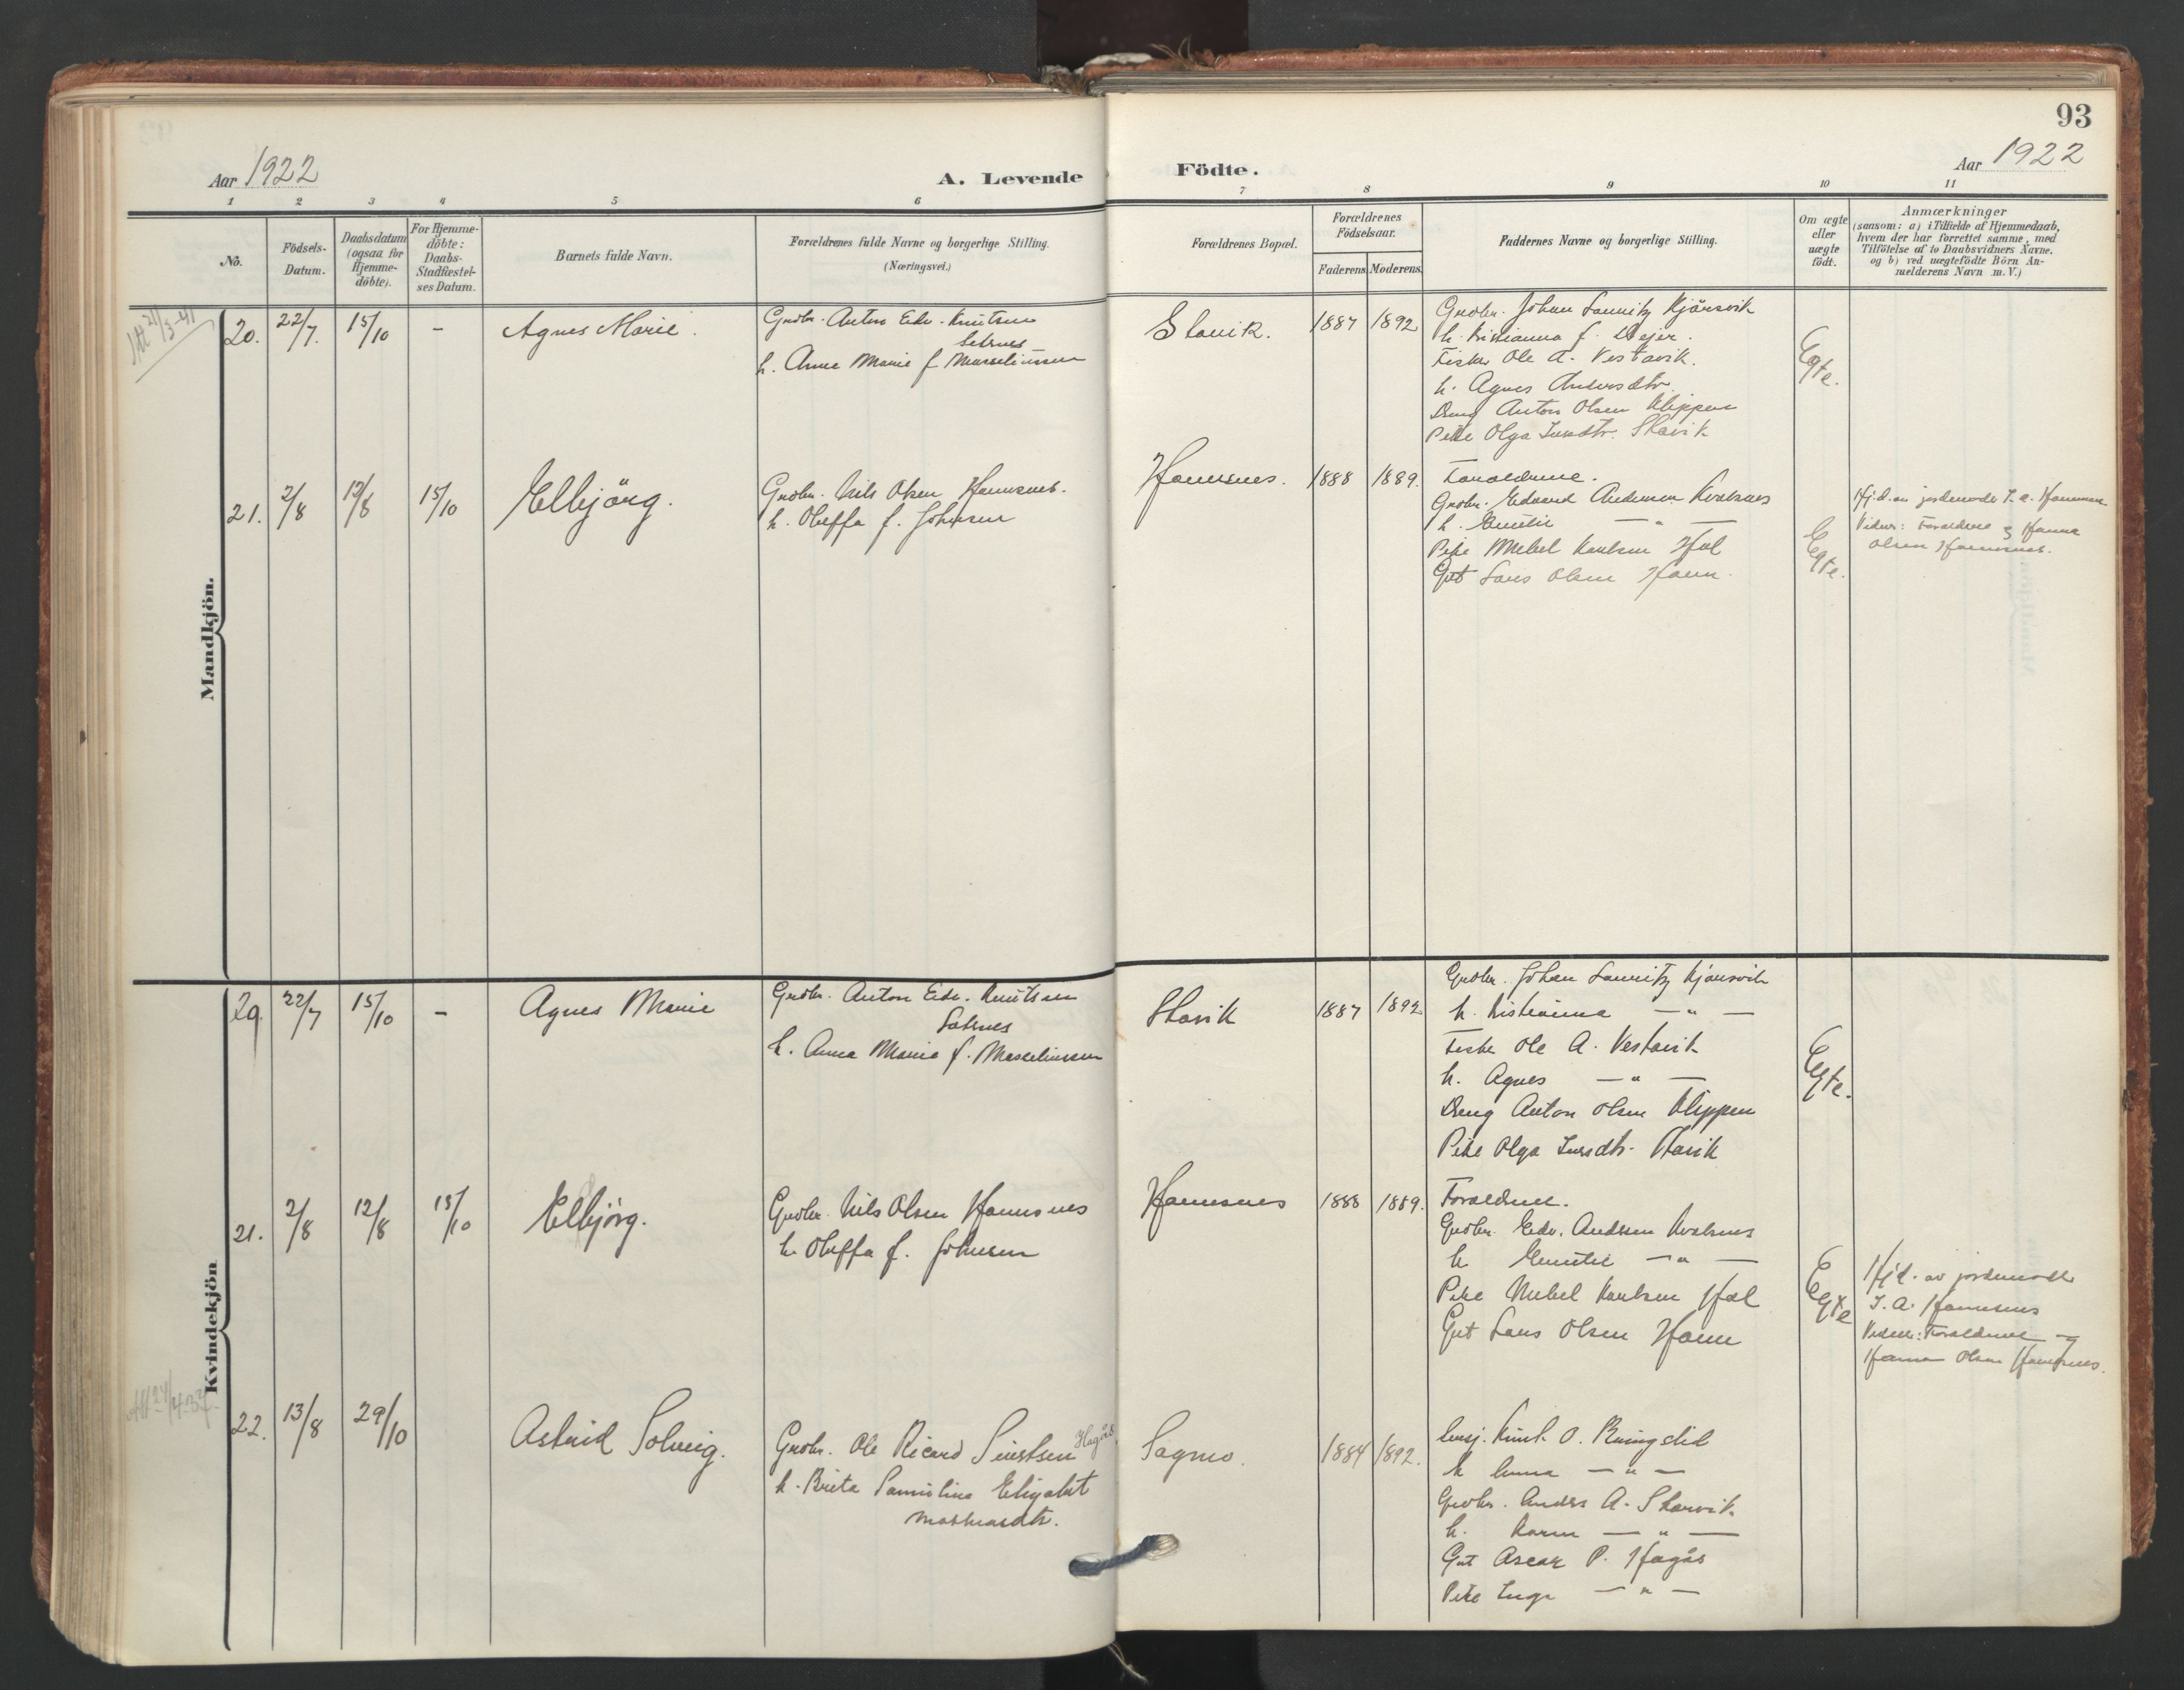 93
Aar 1922
A. Levende
Födte.
Aar 1922
1 2 3 4 5 6 7 8 9 10 11
No.
Födsels-
Datum.
Daabsdatum
(ogsaa for
Hjemme-
döbte).
For Hjemme-
döbte:
Daabs-
Stadfæstel-
ses Datum.
Barnets fulde Navn.
Forældrenes fulde Navne og borgerlige Stilling.
(Næringsvei.)
Forældrenes Bopæl.
Forældrenes
Födselsaar.
Faderens Moderens
Faddernes Navne og borgerlige Stilling.
Om ægte
eller
uægte
födt.
Anmærkninger
(saasom: a) i Tilfælde af Hjemmedaab,
hvem der har forrettet samme, med
Tilföielse af to Daabsvidners Navne.
og b) ved uægtefödte Börn An-
melderens Navn m. V.)
Mandkjön.
20. 22/7. 15/10 - Agnes Marie.
Grdbr. Anton Edv. Knutsen
h. Anna Marie f Marselinssen
Slavik. 1887 1892
Grdbr. Johan Lauritz Kjärsvik
h. Kristianna f.
Fisker Ole A. Vestavik.
h. Agnes Andersdtr.
Dreng Anton Olsen Klippen
Pike Olga Slavik
Egte.
21. 2/8 12/8 15/10 Elbjörg.
Grdbr. Nils Olsen Hamnsnes.
h. Oleffa f. Johnsen
Hamnsnes. 1888 1889.
Foraeldrene.
Grdbr. Edvard Andersen
h. Emilie — " —
Pike Karlsen
Gut Lars Olsen Hamn.
Egte.
Hj.d. av jordemoder I. A. Hamnsnes
Vidner: Foraeldrene og Hanna
Olsen Hamnsnes.
Kvindekjön
29. 22/7 15/10 - Agnes Marie
Grdbr. Anton Edv. Knutsen
h. Anna Marie f. Marselinssen
Slavik 1887 1892
Grdbr. Johan Lauritz Kjärsvik
h. Kristianna — " —
Fisker Ole A. Vestavik
h. Agnes — " —
Dreng Anton Olsen Klippen
Pike Olga Slavik
Egte.
21. 2/8 12/8 15/10 Elbjörg.
Grdbr. Nils Olsen Hamnsnes
h. Oleffa f. Johnsen
Hamnsnes 1888 1889.
Foraeldrene.
Grdbr. Edv. Andersen
h. Emilie — " —
Pike Karlsen
Gut Lars Olsen Hamn
Egte
Hj.d. av jordemoder
I. A. Hamnsnes
Vidner: Foraeldrene og
Hanna Olsen Hamnsnes.
22. 13/8 29/10 Astrid Solveig.
Grdbr. Ole Ricard Sivertsen Hagås
h. Brita
Sagmo. 1884 1892.
O. Ringslid
h. Anna — " —
Grdbr. Anders A.
h. Karen — " —
Gut Oscar P. Hagås
Pike Inga — " —